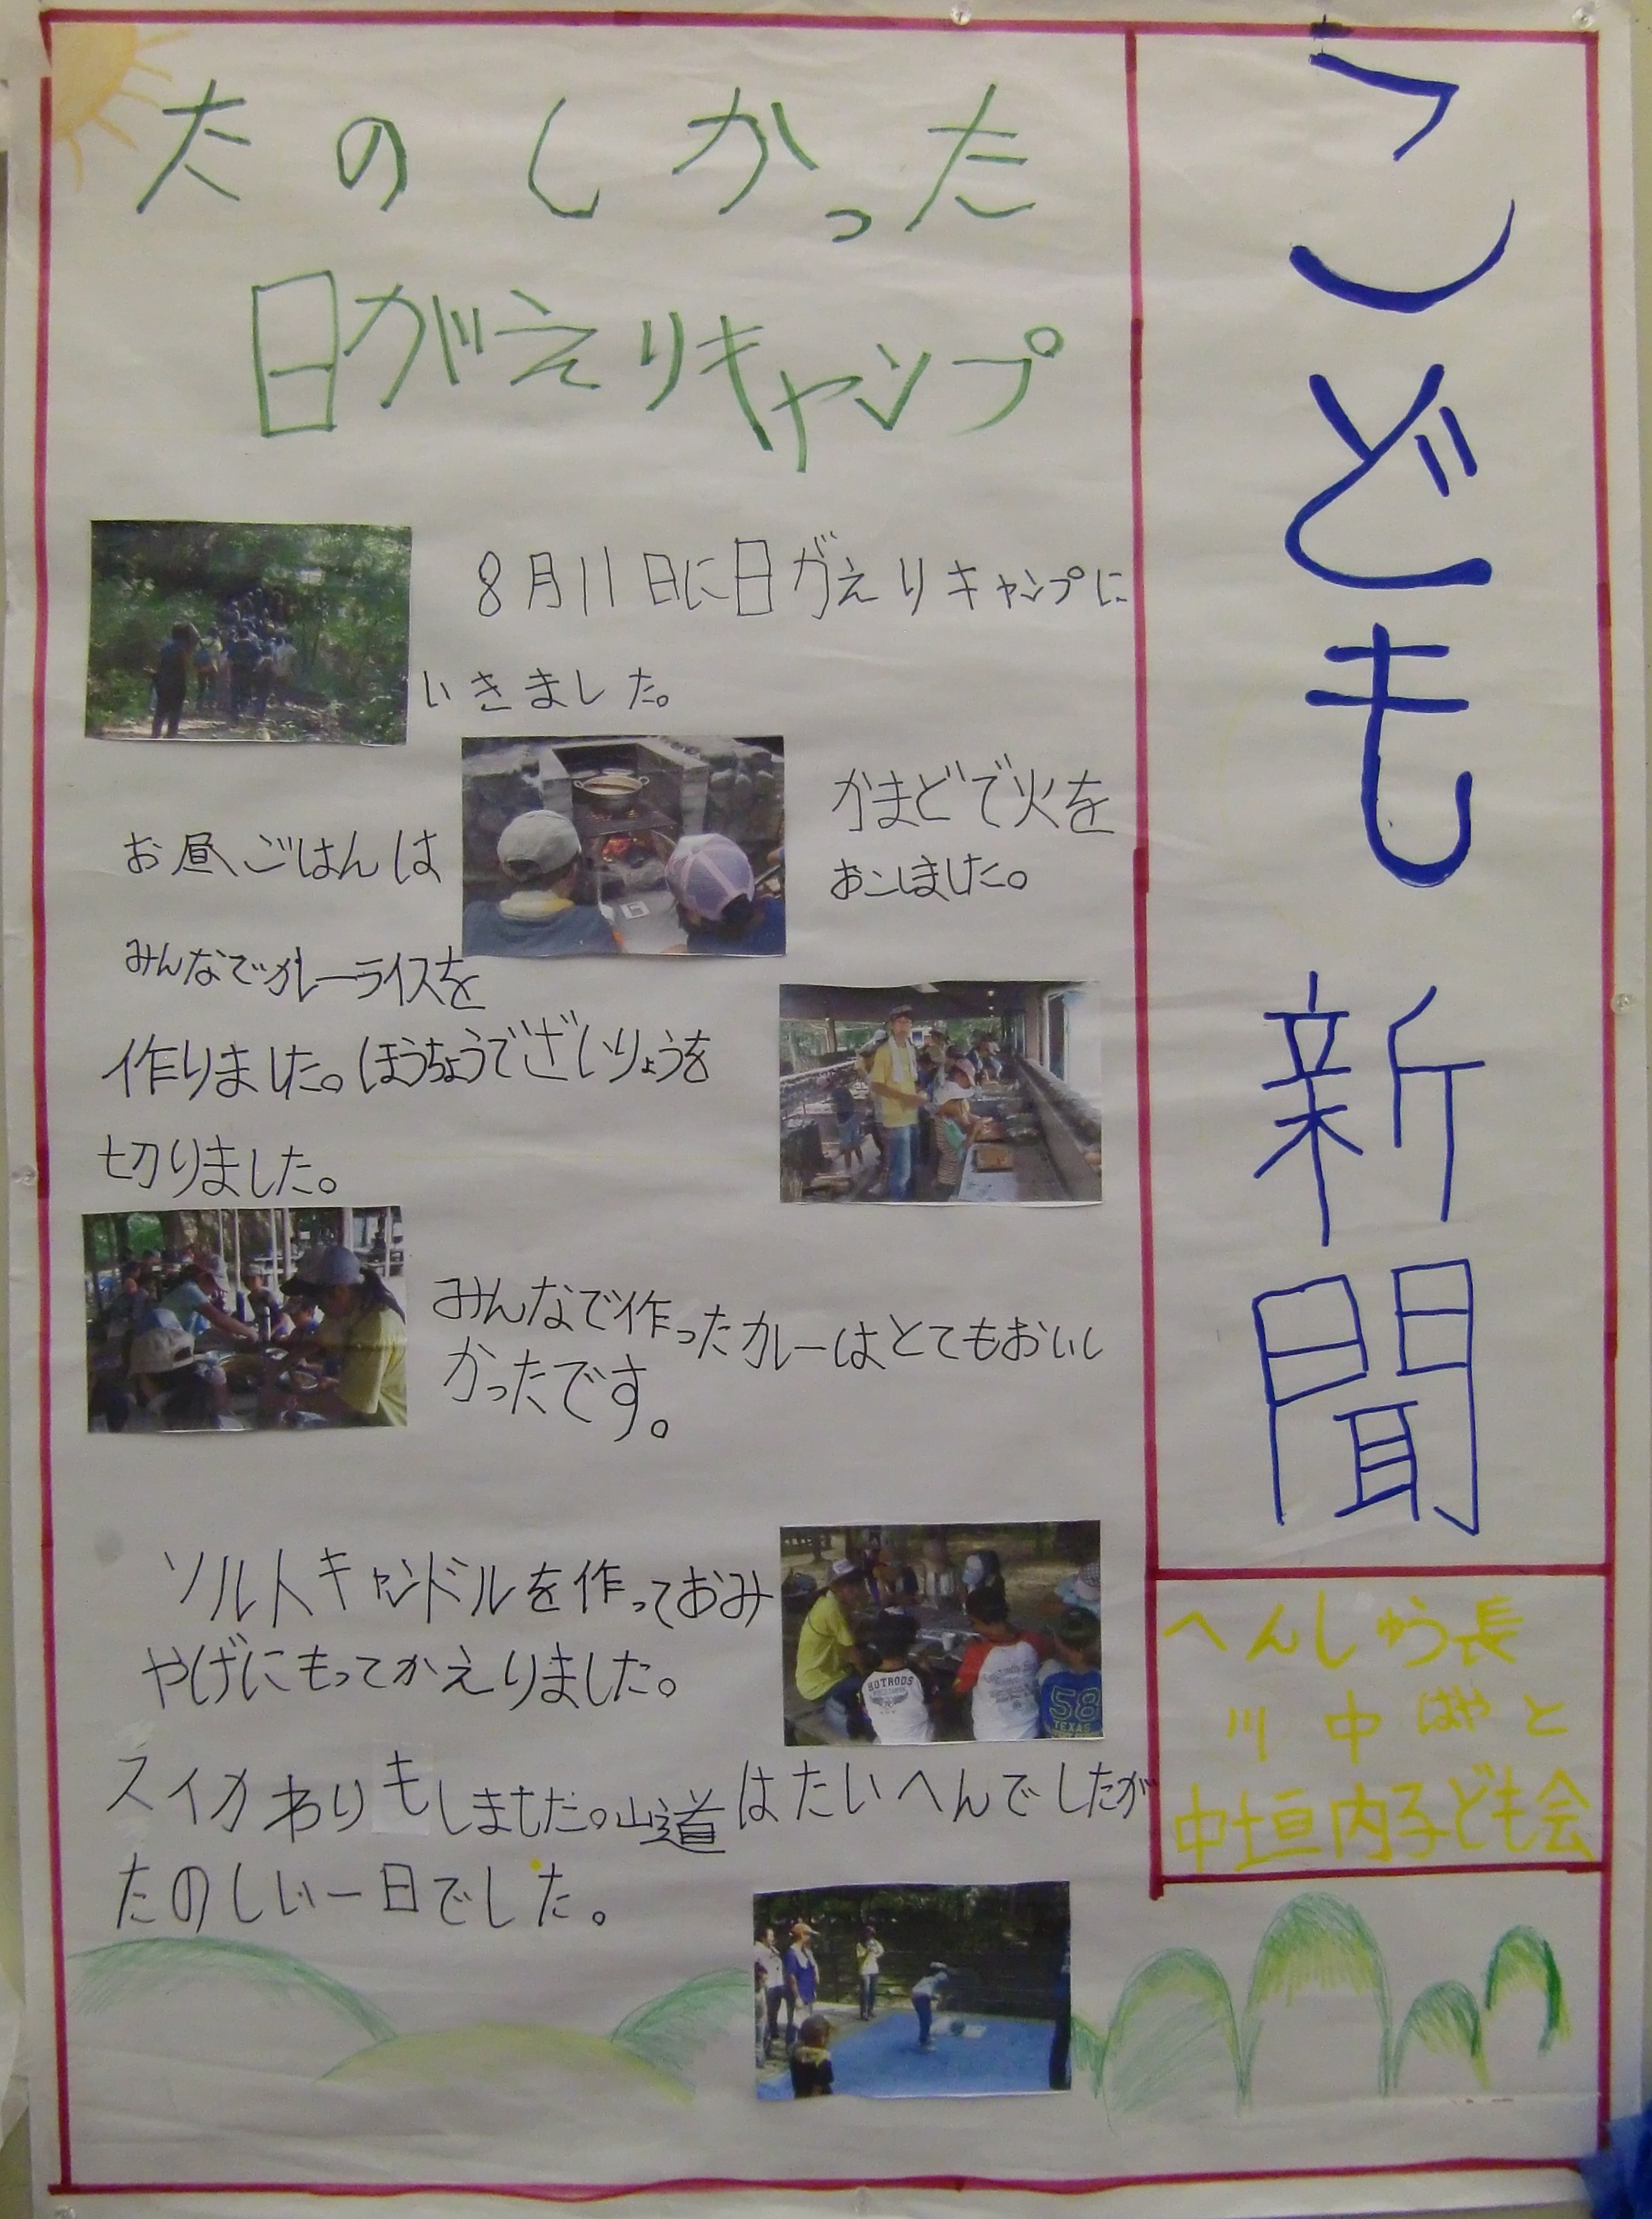 こども新聞
たのしかった
日がえりキャンプ
8月11日に日がえりキャンプに
いきました。
かまどで火を
おこしました。
お昼ごはんは
みんなでカレーライスを
作りました。ほうちょうでざいりょうを
切りました。
みんなで作ったカレーはとてもおいし
かったです。
ソルトキャンドルを作っておみ
やげにもってかえりました。
スイカわりもしました。山道はたいへんでしたが
たのしい一日でした。
へんしゅう長
川中はやと
中垣内子ども会
HOTRODS
58
TEXAS